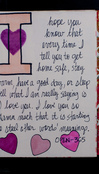 I hope you
know that
every time I
tell you to get
home safe, stay
warm, have a good day, or sleep
well what I am really saying is
I love you. I love you so
damn much that it is starting
to steal other words' meanings.